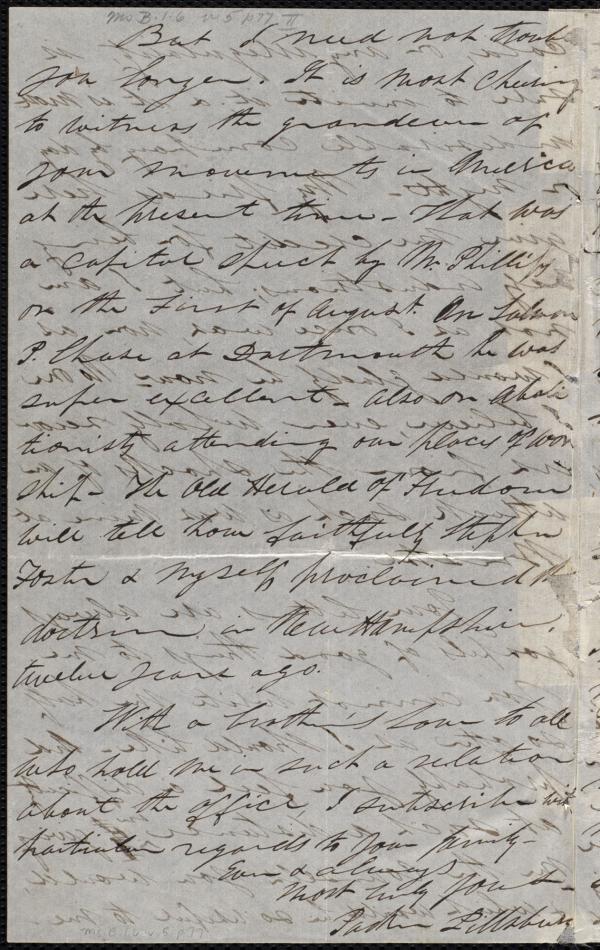 Ms B.1.6 v.5 p77 II
But I need not trouble
you longer. It is most cheering
to witness the grandeur of
your movements in America
at the present time - That was
a capital speech by Mr. Phillips
on the First of August. On Salmon
P. Chase at Dartmouth he was
super excellent - also on Aboli
tionists attending our places of wor
ship - The Old Herald of Freedom
will tell how faithfully Stephen
Foster & myself proclaimed th
doctrine in New Hampshire,
twelve years ago.
With a brother's love to all
who hold me in such a relation
about the office I subscribe with
particular regards to your family -
Ever & always
most truly yours -
Parker Pillsbury
Ms B.1.6 v.5 p77